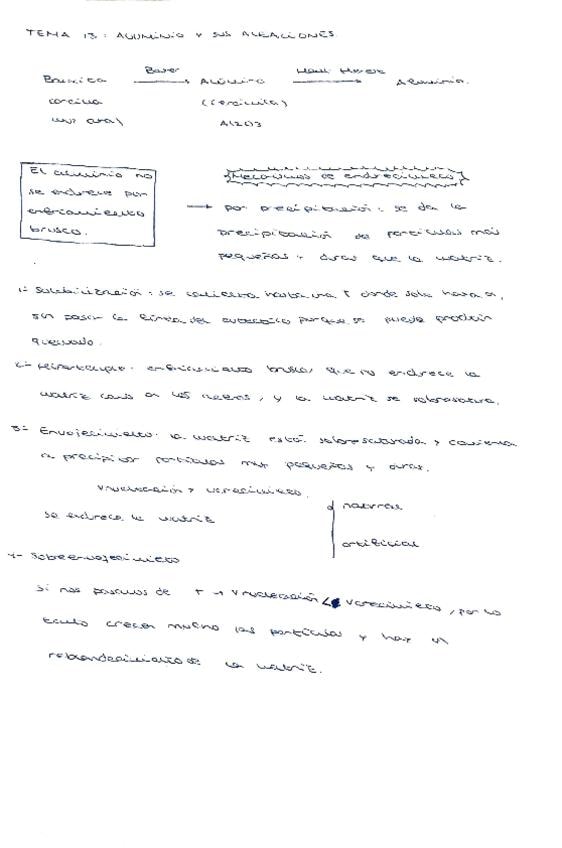 TEMA 13: ALUMINIO Y SUS ALEACIONES.
Bauxita Bayer Alúmina Aluminio
arcilla (cerámica)
Al2O3
El aluminio no
se endurece por
enfriamiento
brusco.
Mecanismos de endurecimiento
→ por precipitación: se da la
precipitación de partículas más
pequeñas y duras que la matriz.
1.- Solubilización: se calienta hasta una T donde solo haya α,
sin pasar la línea del eutéctico porque se puede producir
quemado.
2.- enfriamiento brusco, que no endurece la
matriz como en los aceros, y la matriz se sobresatura.
3.- Envejecimiento: la matriz está sobresaturada y comienza
a precipitar partículas muy pequeñas y duras.
Vnucleación > Vcrecimiento.
se endurece la matriz
natural
artificial
4- Sobreenvejecimiento
Si nos pasamos de T → Vnucleación < Vcrecimiento, por lo
tanto crecen mucho las partículas y hay un
reblandecimiento de la matriz.